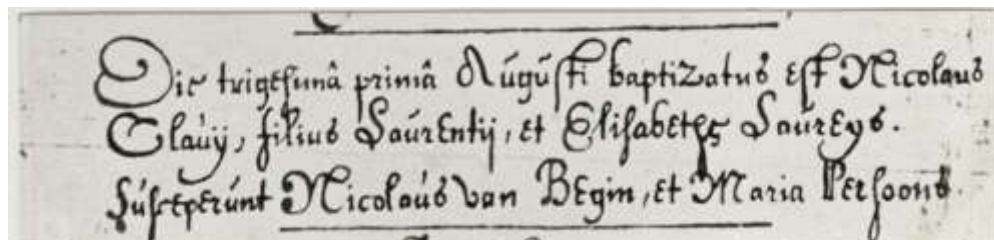 Die trigesimâ primâ Augusti baptizatus est Nicolaus
Clauij, filius Laurentij, et Elisabethę Laureys.
Susceperunt Nicolaus van Begin, et Maria Persoons.